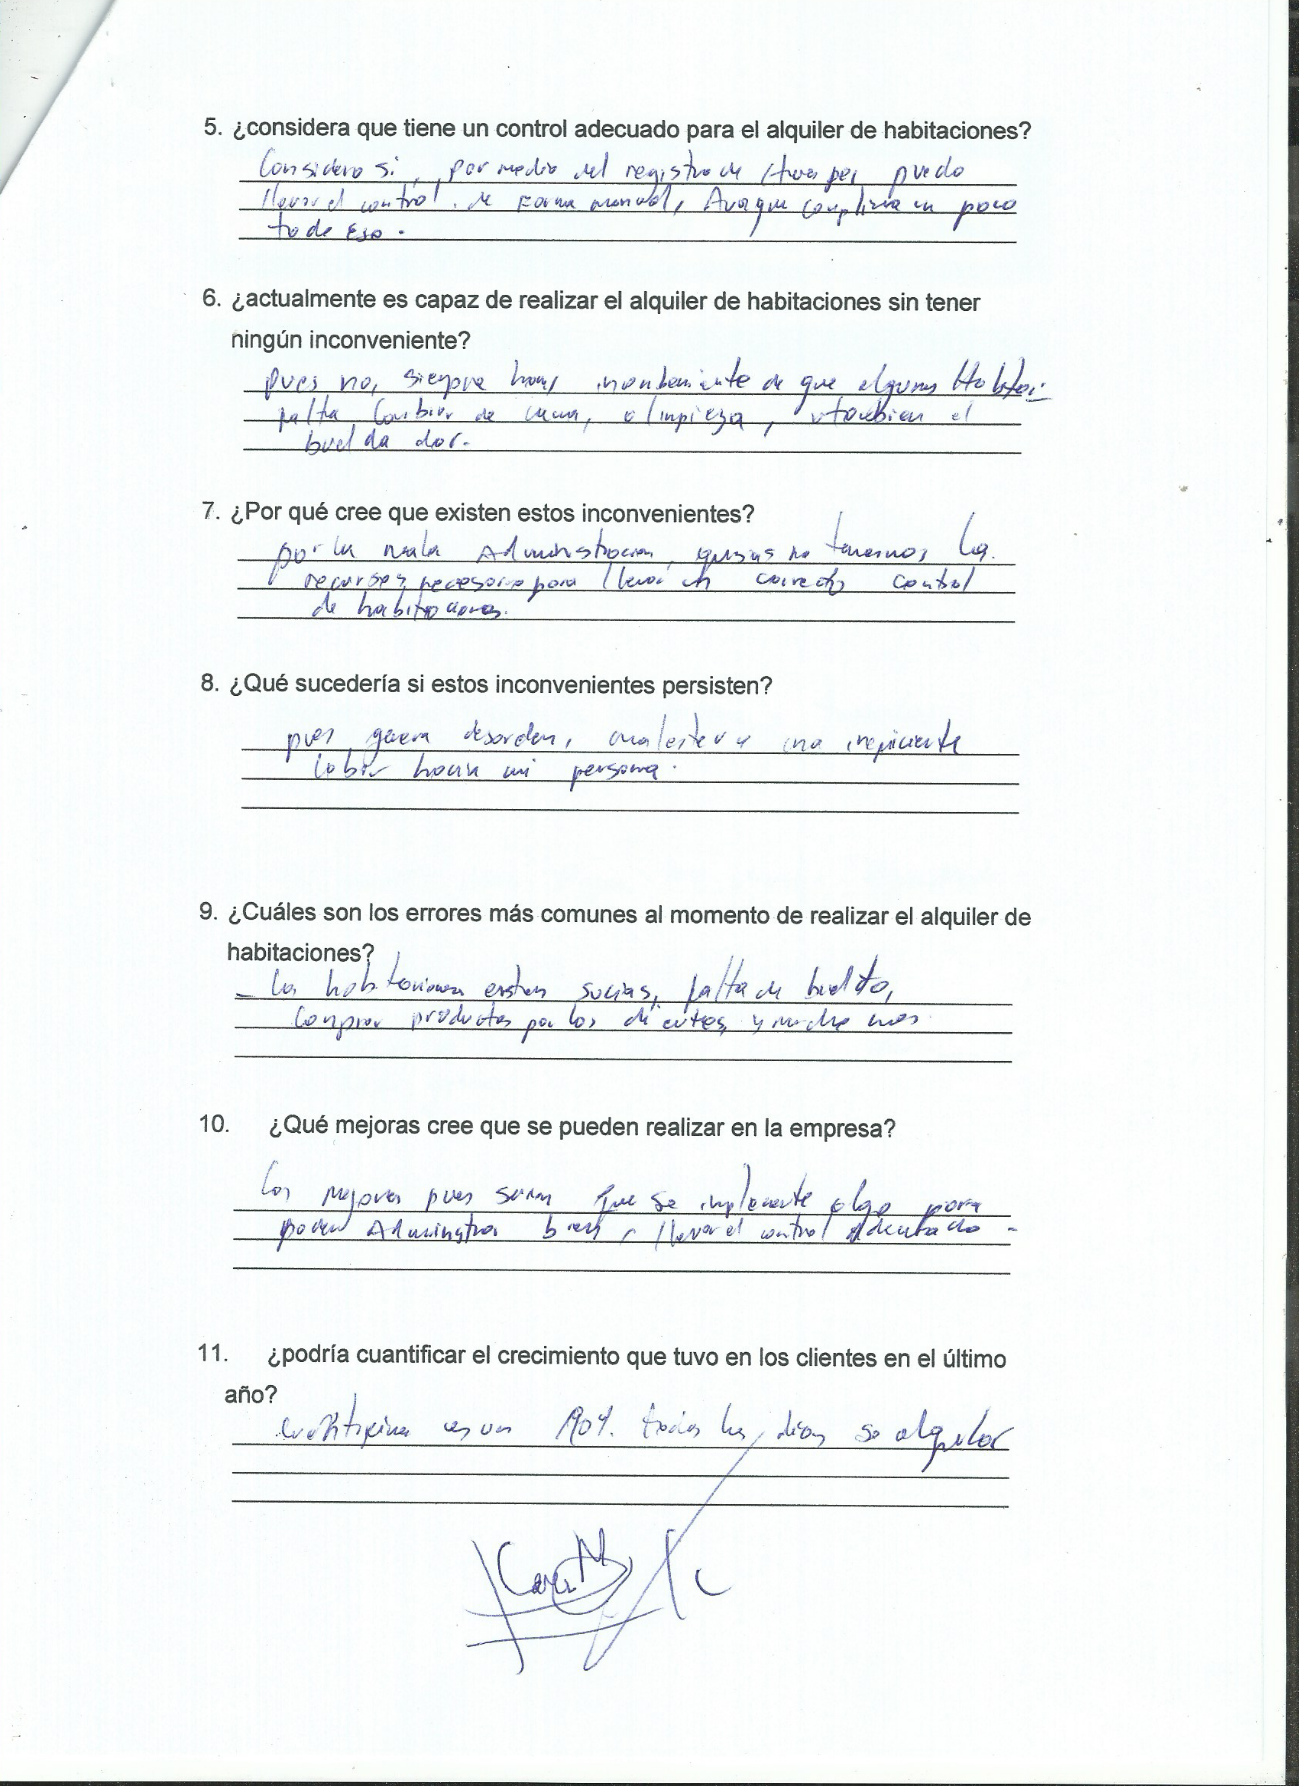 5. ¿considera que tiene un control adecuado para el alquiler de habitaciones?
Considero si, por medio del registro de puedo
llevar el control. de Forma manual, Aunque un poco
to de Eso.
6. ¿actualmente es capaz de realizar el alquiler de habitaciones sin tener
ningún inconveniente?
pues no, siempre hay de que algunas
falta Cambiar de cama, o limpieza, y tambien el
7. ¿Por qué cree que existen estos inconvenientes?
por la mala Administracion, quisas no tenemos los
recursos necesario para llevar un correcto control
de habitaciones.
8. ¿Qué sucedería si estos inconvenientes persisten?
pues genera desorden, malestar y una
labor hacia mi persona.
9. ¿Cuáles son los errores más comunes al momento de realizar el alquiler de
habitaciones?
- Las habitaciones esten sucias, falta de
Comprar productos por los clientes, y mucho mas
10. ¿Qué mejoras cree que se pueden realizar en la empresa?
Las mejoras pues serian que se implemente algo para
poder Administrar bien, llevar el control
11. ¿podría cuantificar el crecimiento que tuvo en los clientes en el último
año?
es un todos los dias se alquilar